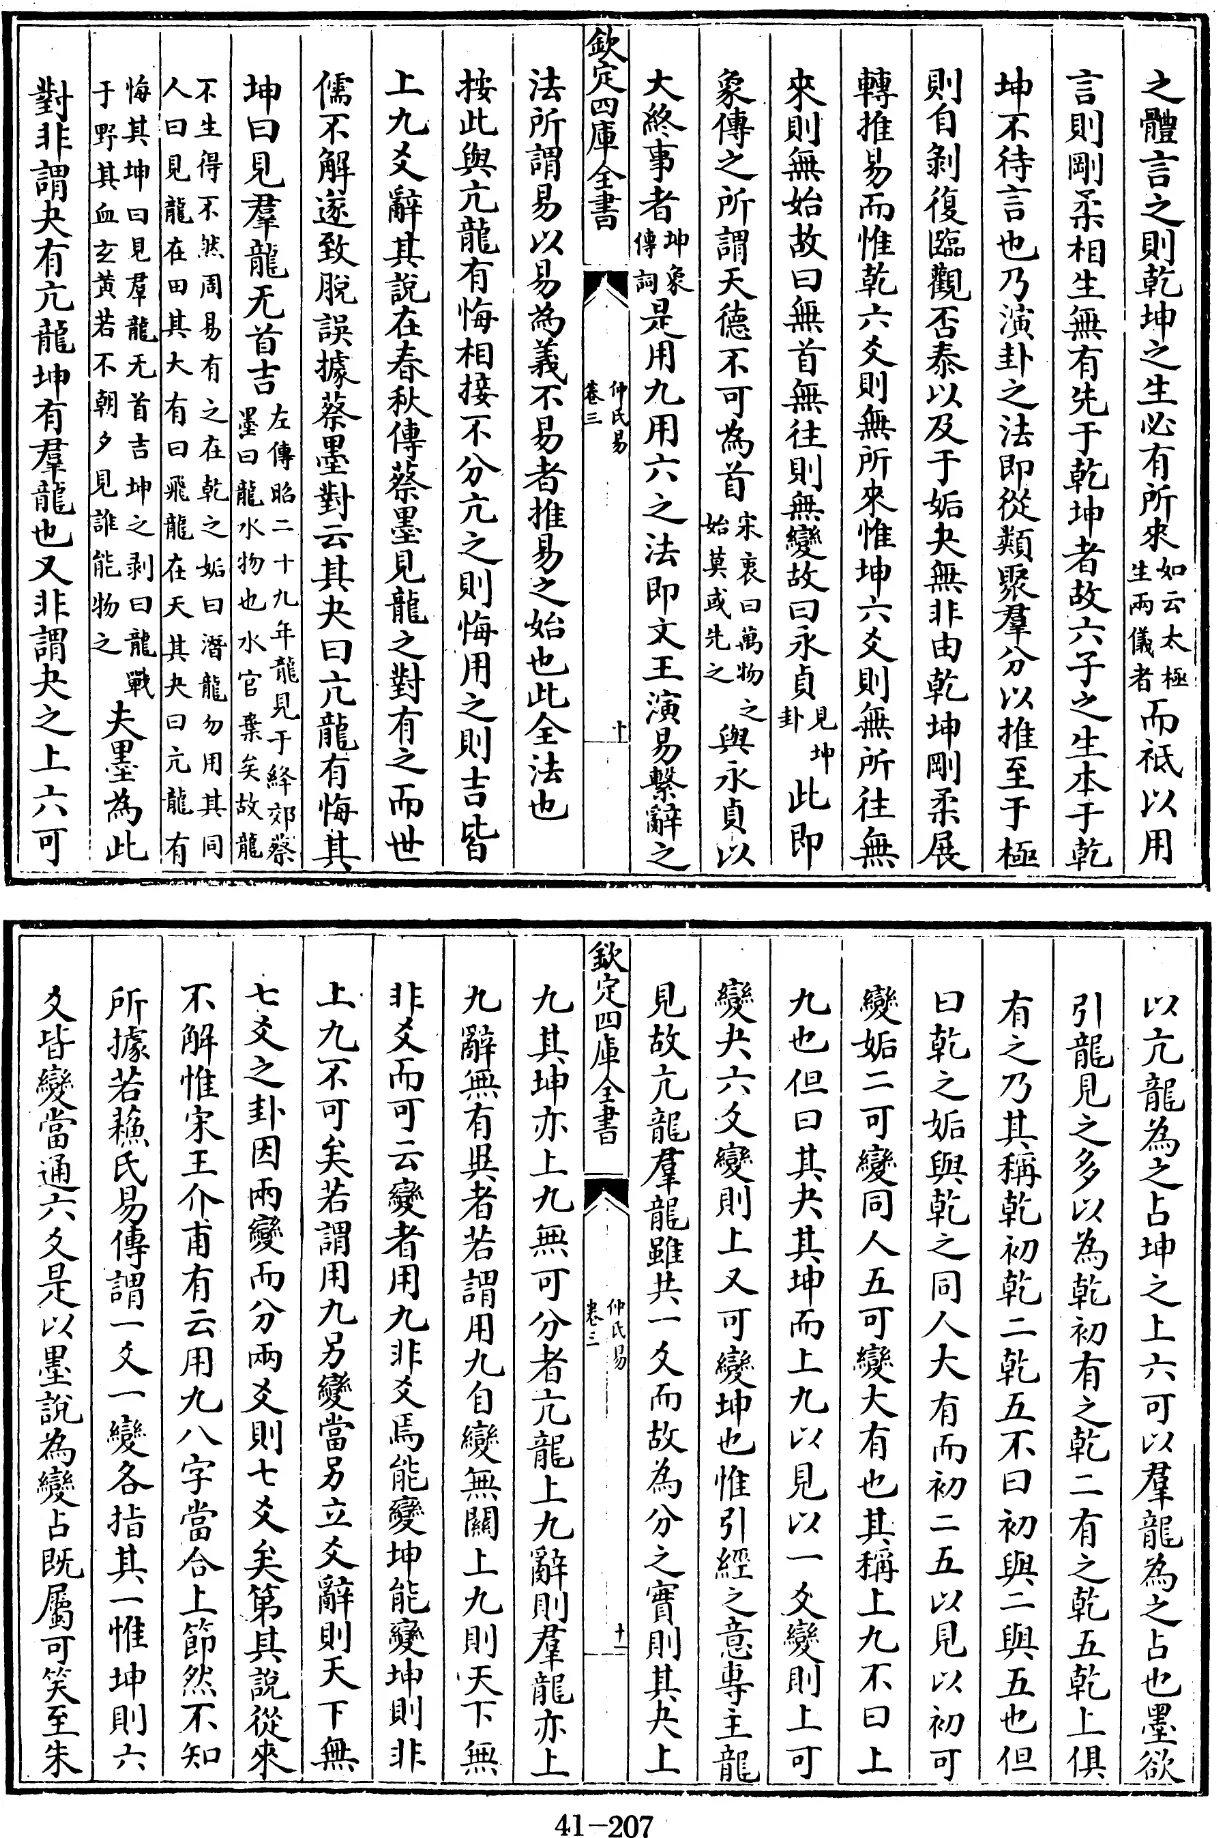 之體言之則乾坤之生必有所來如云太極生兩儀者而祇以用
言則剛柔相生無有先于乾坤者故六子之生本于乾
坤不待言也乃演卦之法即從類聚羣分以推至于極
則自剝復臨觀否泰以及于姤夬無非由乾坤剛柔展
轉推易而惟乾六爻則無所來惟坤六爻則無所往無
來則無始故曰無首無往則無變故曰永貞見坤卦此即
象傳之所謂天德不可為首宋衷曰萬物之始莫或先之與永貞以
大終事者坤象傳詞是用九用六之法即文王演易繫辭之
欽定四庫全書
仲氏易
卷三
十
法所謂易以易為義不易者推易之始也此全法也
按此與亢龍有悔相接不分亢之則悔用之則吉皆
上九爻辭其說在春秋傳蔡墨見龍之對有之而世
儒不解遂致脫誤據蔡墨對云其夬曰亢龍有悔其
坤曰見羣龍无首吉左傳昭二十九年龍見于絳郊蔡墨曰龍水物也水官棄矣故龍
不生得不然周易有之在乾之姤曰潛龍勿用其同人曰見龍在田其大有曰飛龍在天其夬曰亢龍有
悔其坤曰見羣龍无首吉坤之剥曰龍戰于野其血玄黄若不朝夕見誰能物之夫墨為此
對非謂夬有亢龍坤有羣龍也又非謂夬之上六可
以亢龍為之占坤之上六可以羣龍為之占也墨欲
引龍見之多以為乾初有之乾二有之乾五乾上俱
有之乃其稱乾初乾二乾五不曰初與二與五也但
曰乾之姤與乾之同人大有而初二五以見以初可
變姤二可變同人五可變大有也其稱上九不曰上
九也但曰其夬其坤而上九以見以一爻變則上可
變夬六爻變則上又可變坤也惟引經之意專主龍
見故亢龍羣龍雖共一爻而故為分之實則其夬上
欽定四庫全書
仲氏易
卷三
十一
九其坤亦上九無可分者亢龍上九辭則羣龍亦上
九辭無有異者若謂用九自變無關上九則天下無
非爻而可云變者用九非爻焉能變坤能變坤則非
上九不可矣若謂用九另變當另立爻辭則天下無
七爻之卦因兩變而分兩爻則七爻矣第其說從來
不解惟宋王介甫有云用九八字當合上節然不知
所據若蘓氏易傳謂一爻一變各指其一惟坤則六
爻皆變當通六爻是以墨說為變占既屬可笑至朱
41-207